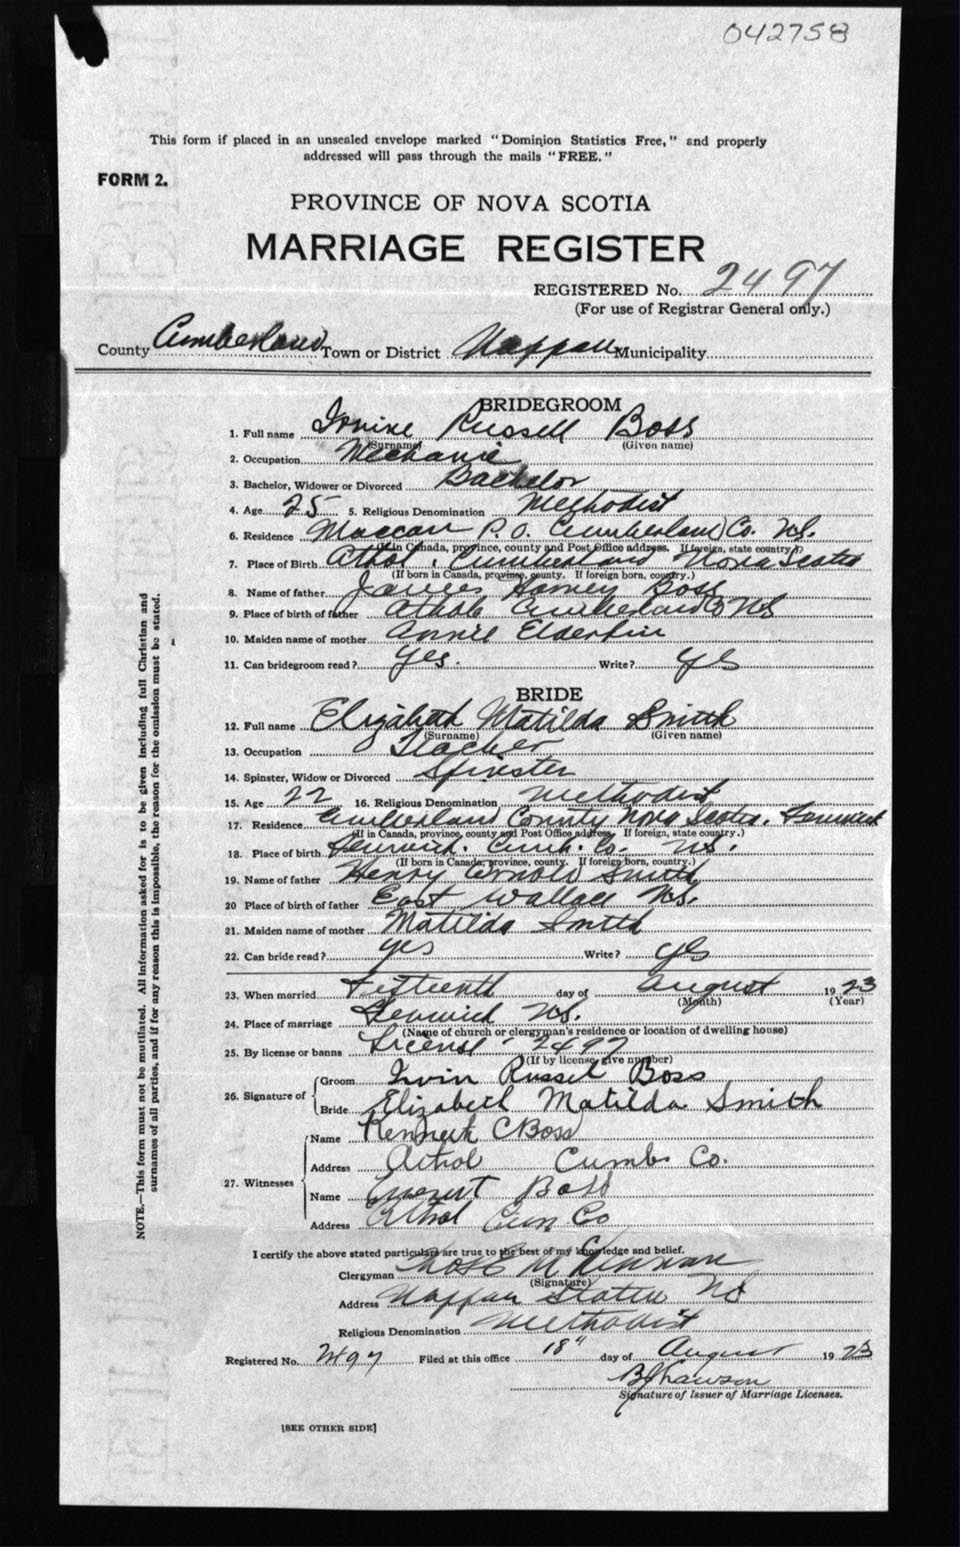 042758
This form if placed in an unsealed envelope marked "Dominion Statistics Free," and properly
addressed will pass through the mails "FREE."
FORM 2.
PROVINCE OF NOVA SCOTIA
MARRIAGE REGISTER
REGISTERED No. 2497
(For use of Registrar General only.)
County Cumberland Town or District Nappan Municipality
BRIDEGROOM
1. Full name Irvine Russell Boss
(Surname) (Given name)
2. Occupation Mechanic
3. Bachelor, Widower or Divorced Bachelor
4. Age 25 5. Religious Denomination Methodist
6. Residence Maccan P.O. Cumberland Co. N.S.
(If in Canada, province, county and Post Office address. If foreign, state country.)
7. Place of Birth Athol, Cumberland Nova Scotia
(If born in Canada, province, county. If foreign born, country.)
8. Name of father James Harvey Boss
9. Place of birth of father Athole Cumberland Co NS
10. Maiden name of mother Annie Elderkin
11. Can bridegroom read? Yes. Write? Yes
BRIDE
12. Full name Elizabeth Matilda Smith
(Surname) (Given name)
13. Occupation Teacher
14. Spinster, Widow or Divorced Spinster
15. Age 22 16. Religious Denomination Methodist
17. Residence Cumberland County Nova Scotia. Fenwick
(If in Canada, province, county and Post Office address. If foreign, state country.)
18. Place of birth Fenwick. Cumb. Co. N.S.
(If born in Canada, province, county. If foreign born, country.)
19. Name of father Henry Arnold Smith
20 Place of birth of father East Wallace N.S.
21. Maiden name of mother Matilda Smith
22. Can bride read? yes Write? yes
23. When married Fifteenth day of August 1923
(Month) (Year)
24. Place of marriage Fenwick N.S.
(Name of church or clergyman's residence or location of dwelling house)
25. By license or banns License, 2497
(If by license, give number)
26. Signature of
Groom Irvin Russel Boss
Bride Elizabeth Matilda Smith
27. Witnesses
Name Kenneth C Boss
Address Athol Cumb. Co.
Name Everett Boss
Address Athol Cum Co
I certify the above stated particulars are true to the best of my knowledge and belief.
Clergyman
(Signature)
Address Nappan Station NS
Religious Denomination Methodist
Registered No. 2497 Filed at this office 18" day of August 1923
Signature of Issuer of Marriage Licenses.
[SEE OTHER SIDE]
NOTE.—This form must not be mutilated. All information asked for is to be given including full Christian and
surnames of all parties, and if for any reason this is impossible, the reason for the omission must be stated.